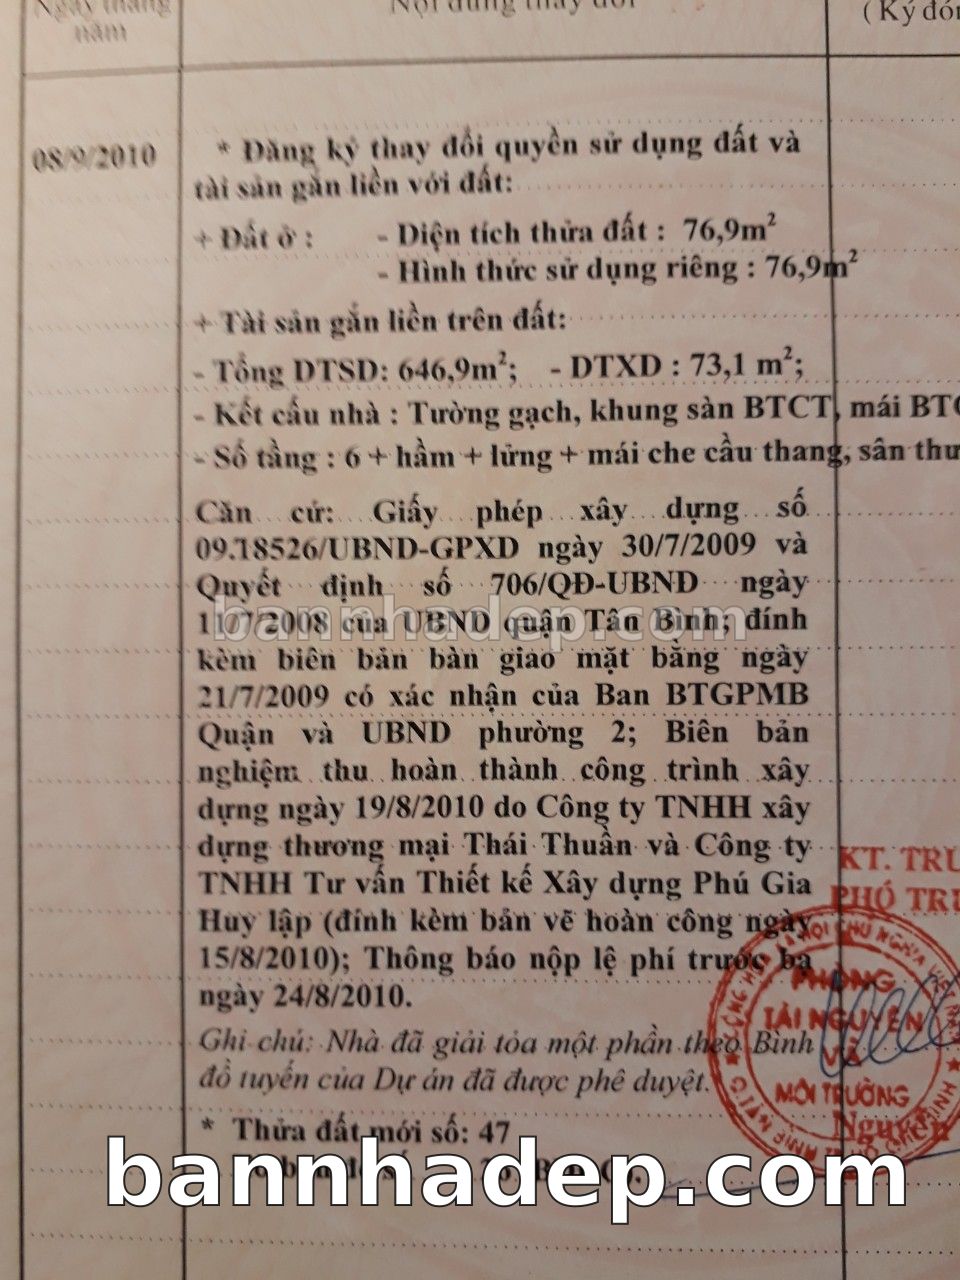 Ngày tháng năm
Nội dung thay đổi
( Ký đón
08/9/2010
* Đăng ký thay đổi quyền sử dụng đất và
tài sản gắn liền với đất:
+ Đất ở : - Diện tích thửa đất : 76,9m²
- Hình thức sử dụng riêng : 76,9m²
+ Tài sản gắn liền trên đất:
- Tổng DTSD: 646,9m²; - DTXD : 73,1 m²;
- Kết cấu nhà : Tường gạch, khung sàn BTCT, mái BTC
- Số tầng : 6 + hầm + lửng + mái che cầu thang, sân thư
Căn cứ: Giấy phép xây dựng số
09.18526/UBND-GPXD ngày 30/7/2009 và
Quyết định số 706/QĐ-UBND ngày
11/7/2008 của UBND quận Tân Bình; đính
bannhadep.com
kèm biên bản bàn giao mặt bằng ngày
21/7/2009 có xác nhận của Ban BTGPMB
Quận và UBND phường 2; Biên bản
nghiệm thu hoàn thành công trình xây
dựng ngày 19/8/2010 do Công ty TNHH xây
dựng thương mại Thái Thuần và Công ty
TNHH Tư vấn Thiết kế Xây dựng Phú Gia
Huy lập (đính kèm bản vẽ hoàn công ngày
15/8/2010); Thông báo nộp lệ phí trước bạ
ngày 24/8/2010.
Ghi chú: Nhà đã giải tỏa một phần theo Bình
đồ tuyến của Dự án đã được phê duyệt.
* Thửa đất mới số: 47
KT. TRƯ
PHÓ TRƯ
PHÒNG
TÀI NGUYÊN
VÀ
MÔI TRƯỜNG
bannhadep.com